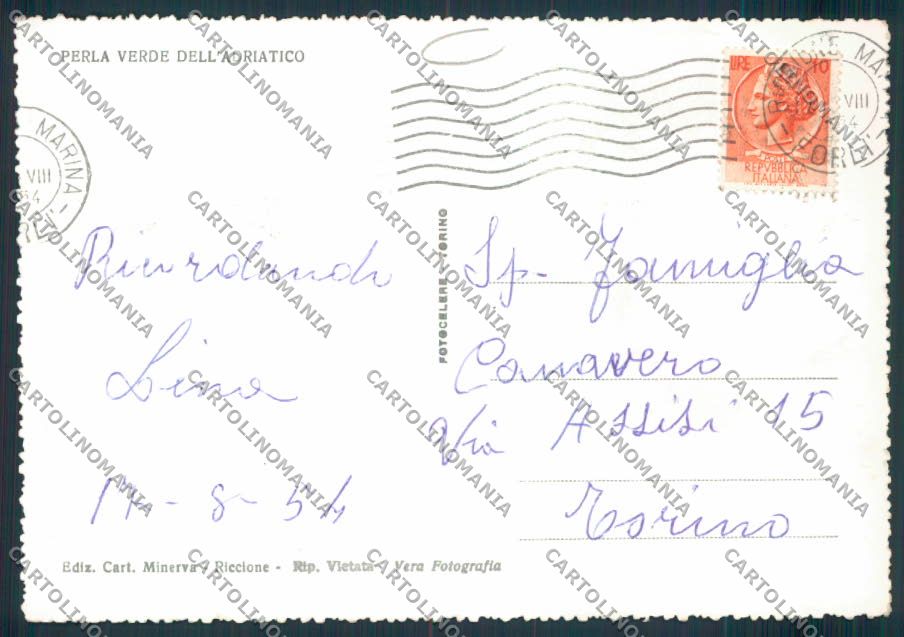 PERLA VERDE DELL'ADRIATICO
LIRE 10
POSTE
REPVBBLICA
ITALIANA
MARINA
VIII
Ricordando
Lina
17-8-54
FOTOCELERE - TORINO
Sp. Famiglia
Canavero
Via Assisi 15
Torino
Ediz. Cart. Minerva - Riccione - Rip. Vietata - Vera Fotografia
CARTOLINOMANIA